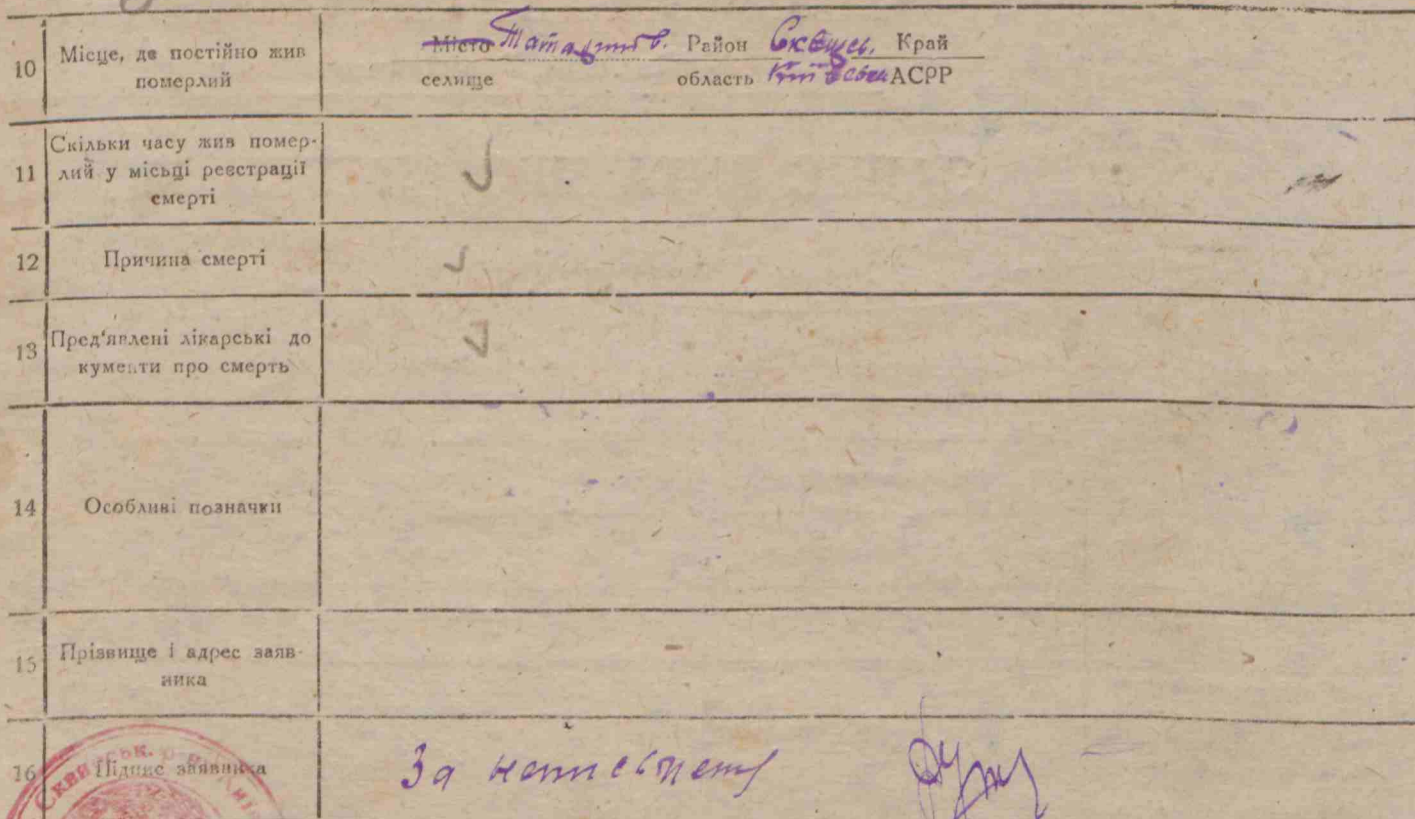 10 Місце, де постійно жив
померлий
Місто Район Сквирсь. Край
селище область Київська АСРР
11 Скільки часу жив помер-
лий у місьці реєстрації
смерті
12 Причина смерті
13 Пред'явлені лікарські до
кументи про смерть
14 Особливі позначки
15 Прізвище і адрес заяв-
ника
16 Підпис заявника За неписьмен